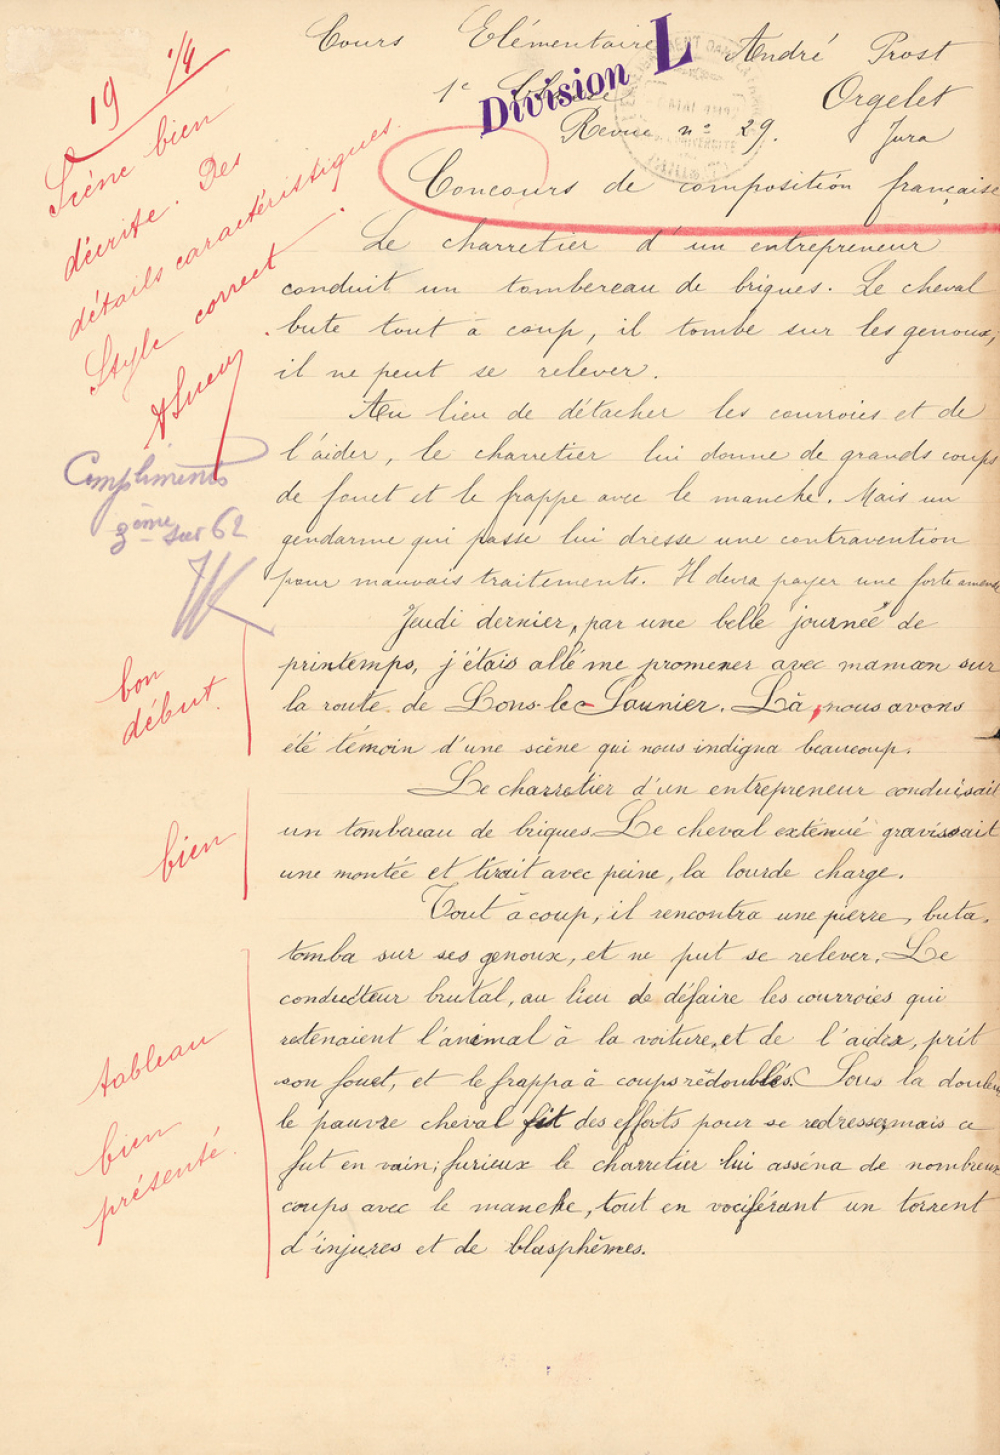 Cours Elémentaire André Prost
1e Division L Orgelet
Revue n° 29. Jura
Concours de composition française
19 1/4
Scène bien
décrite. Des
détails caractéristiques.
Style correct.
Compliments
3ème sur 62
Le charretier d'un entrepreneur
conduit un tombereau de briques. Le cheval
bute tout à coup, il tombe sur les genoux,
il ne peut se relever.
Au lieu de détacher les courroies et de
l'aider, le charretier lui donne de grands coups
de fouet et le frappe avec le manche. Mais un
gendarme qui passe lui dresse une contravention
pour mauvais traitements. Il devra payer une forte amende
bon
début.
Jeudi dernier, par une belle journée de
printemps, j'étais allé me promener avec maman sur
la route de Lons-le-Saunier. Là, nous avons
été témoin d'une scène qui nous indigna beaucoup.
bien
Le charretier d'un entrepreneur conduisait
un tombereau de briques. Le cheval exténué gravissait
une montée et tirait avec peine, la lourde charge.
tableau
bien
présenté.
Tout à coup, il rencontra une pierre, buta,
tomba sur ses genoux, et ne put se relever. Le
conducteur brutal, au lieu de défaire les courroies qui
retenaient l'animal à la voiture, et de l'aider, prit
son fouet, et le frappa à coups redoublés. Sous la douleur
le pauvre cheval fit des efforts pour se redresser, mais ce
fut en vain; furieux le charretier lui asséna de nombreux
coups avec le manche, tout en vociférant un torrent
d'injures et de blasphèmes.